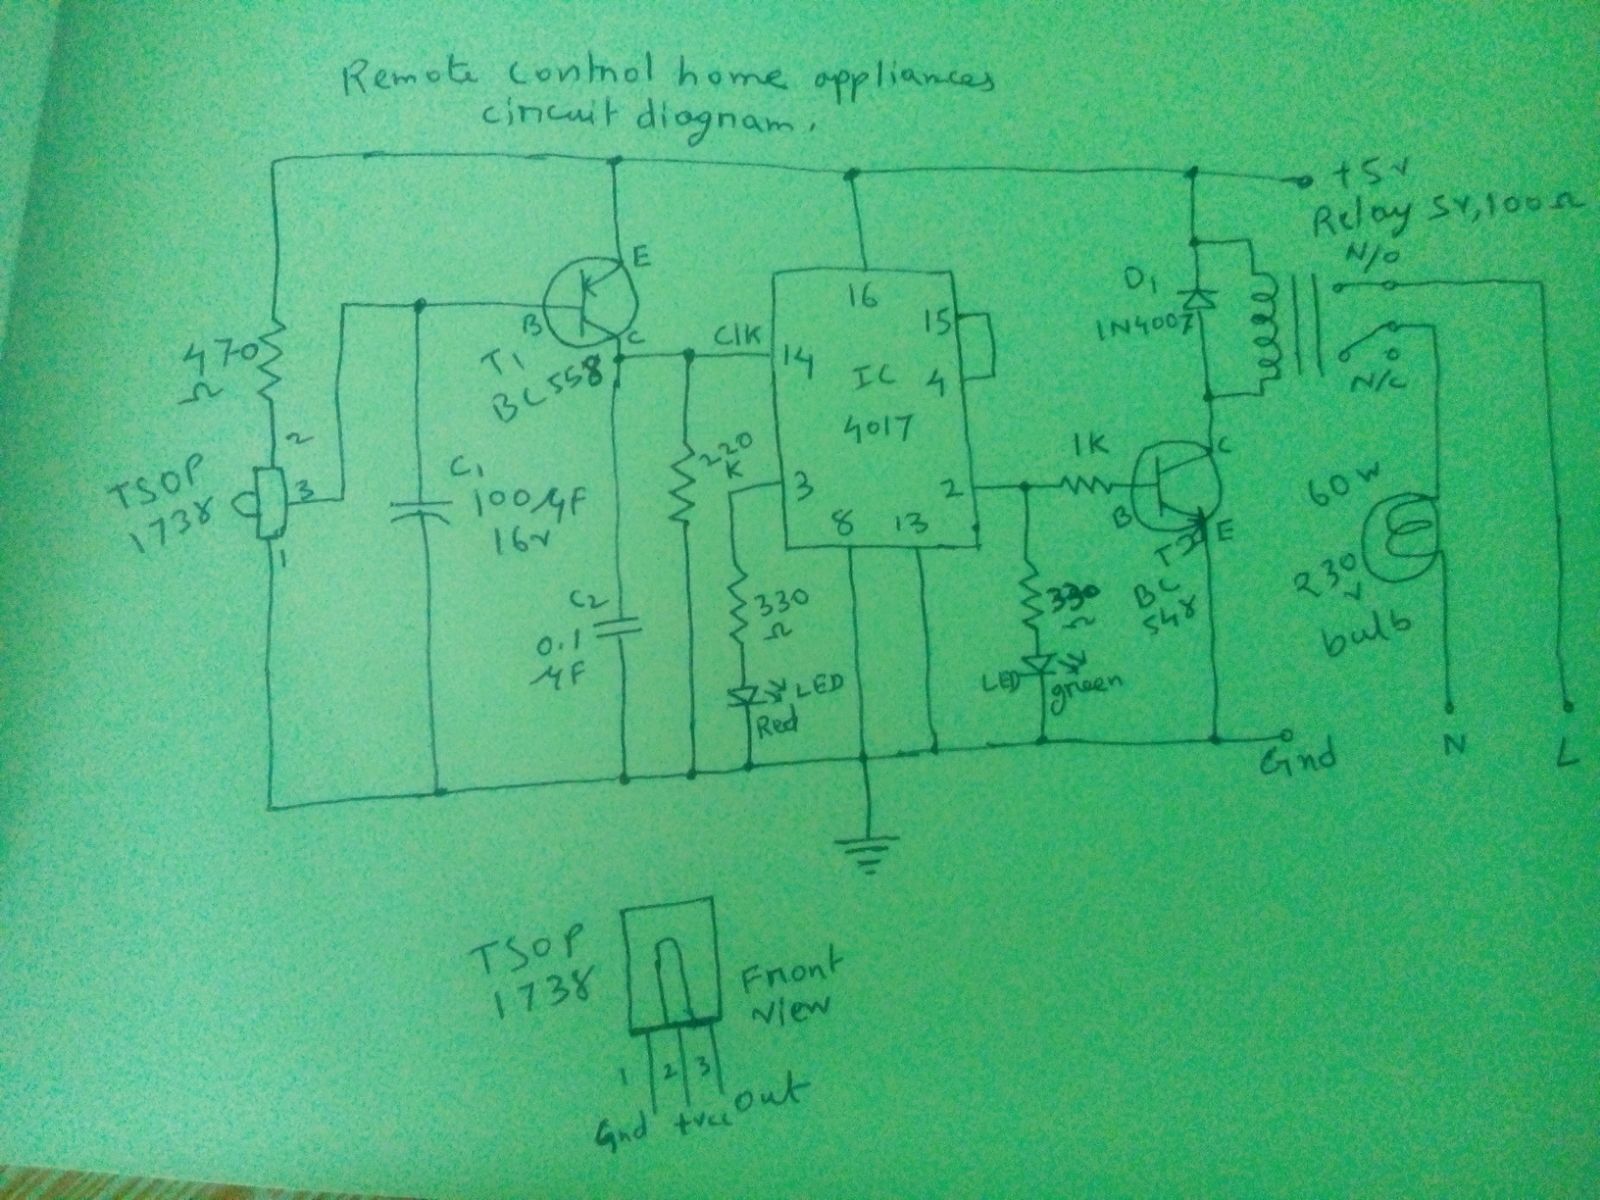 Remote control home appliances
circuit diagram.
+5v
Relay 5v, 100Ω
N/O
N/C
D1
1N4007
E
B
C
T1
BC558
470
Ω
2
3
1
TSOP
1738
C1
100µF
16v
C2
0.1
µF
220
K
Clk
14
16
15
4
IC
4017
3
2
8
13
330
Ω
LED
Red
1K
B
C
E
T2
BC
548
330
Ω
LED
green
60w
230
v
bulb
Gnd
N
L
TSOP
1738
Front
view
1 2 3
Gnd +vcc out